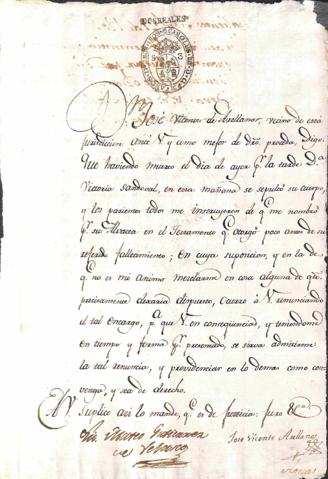 DOS REALES
Dn José Vicente de Arellanos, vecino de esta
jurisdiccion ante V y como mejor de dro. proceda, Digo:
Que haviendo muerto el dia de ayer pr. la tarde Da.
Victoria Sandoval, en esta mañana se sepultó su cuerpo,
y los parientes todos me instruyeron de q. me nombró
pr. su Alvacea en el Testamento qe. otorgó poco antes de su
referido fallecimiento; En cuya suposicion, y en la de
q. no es mi animo mesclarme en cosa alguna de qto.
precisamente dexaria dispuesto, Ocurro à V. renunciando
el tal encargo, pa. que V. en conseqüencia, y teniendome
en tiempo y forma pr. presentado, se sirva admitirme
la tal renuncia, y providenciar en lo demas como con-
venga, y sea de derecho.
A V. Suplico asi lo mande, q. es de justicia: juro &a.
Jose Vicente Arellanos